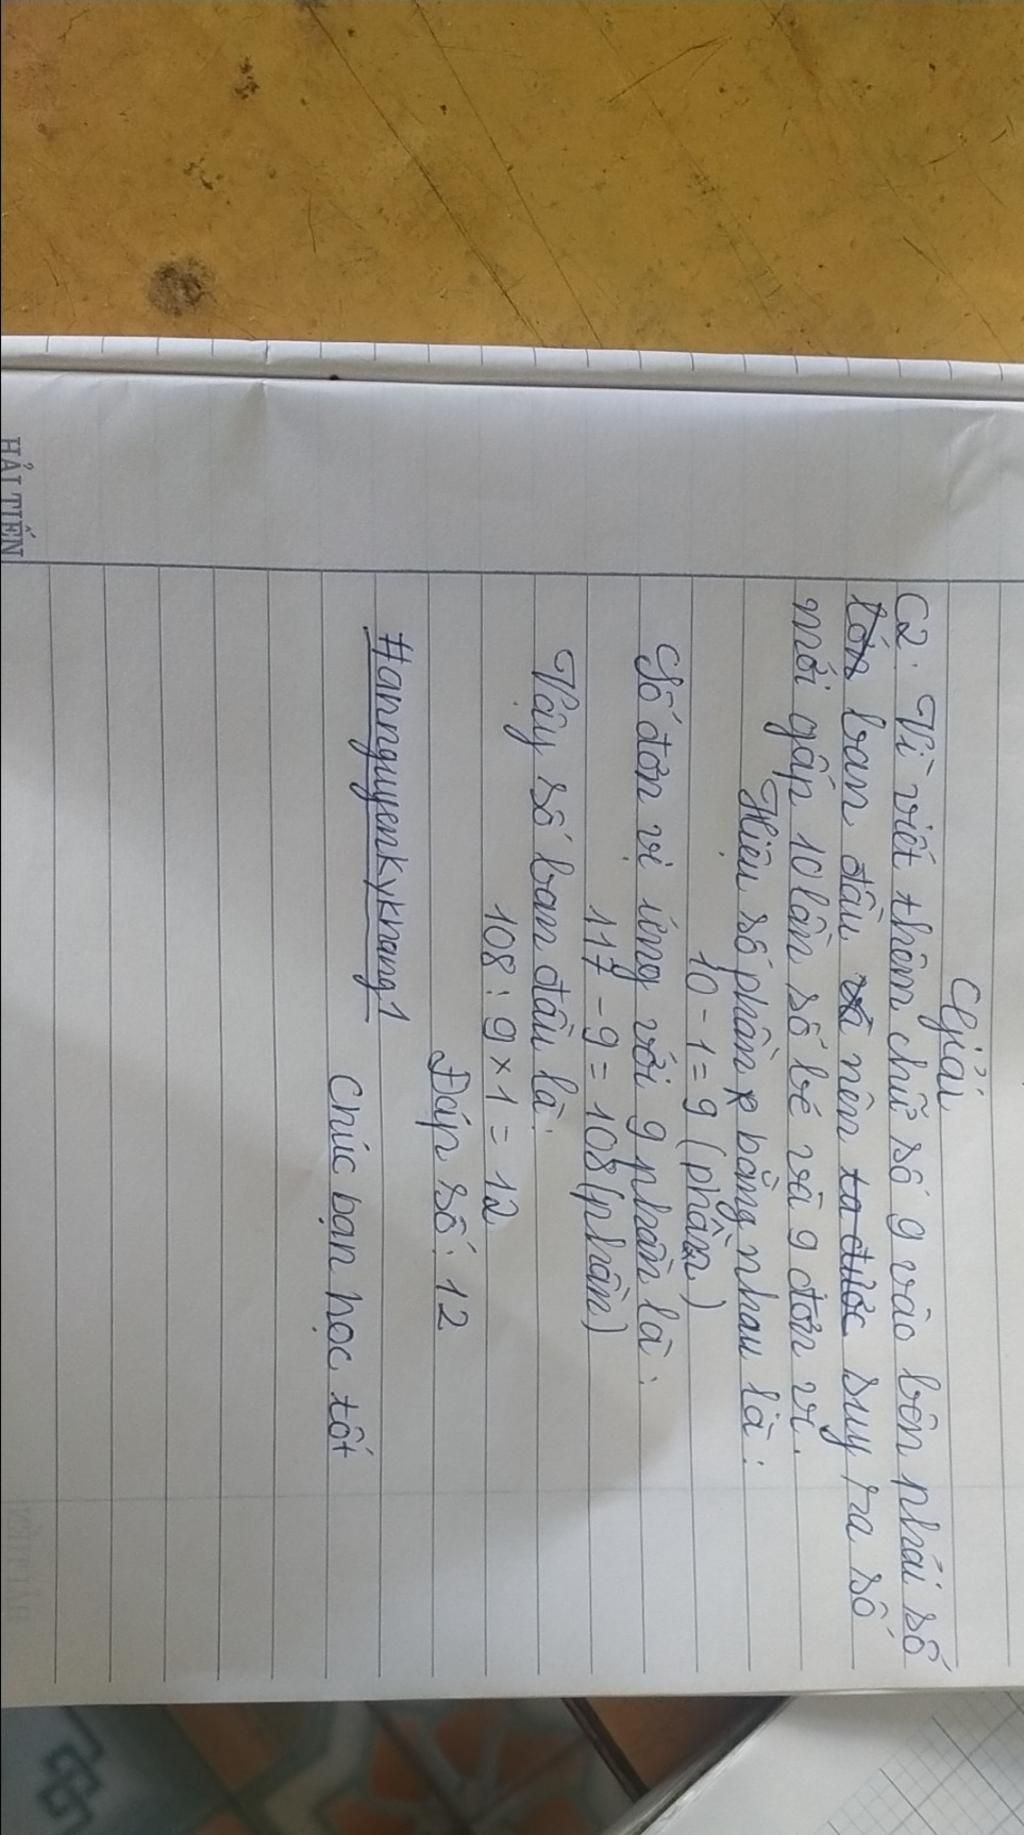 Giải
C2: Vì viết thêm chữ số 9 vào bên phải số
lớn ban đầu và nên ta được suy ra số
mới gấp 10 lần số bé và 9 đơn vị.
Hiệu số phần bằng nhau là:
10 - 1 = 9 (phần)
Số đơn vị ứng với 9 phần là:
117 - 9 = 108 (phần)
Vậy số ban đầu là:
108 : 9 × 1 = 12
Đáp số: 12
#annguyenkykhang1
Chúc bạn học tốt
HẢI TIẾN